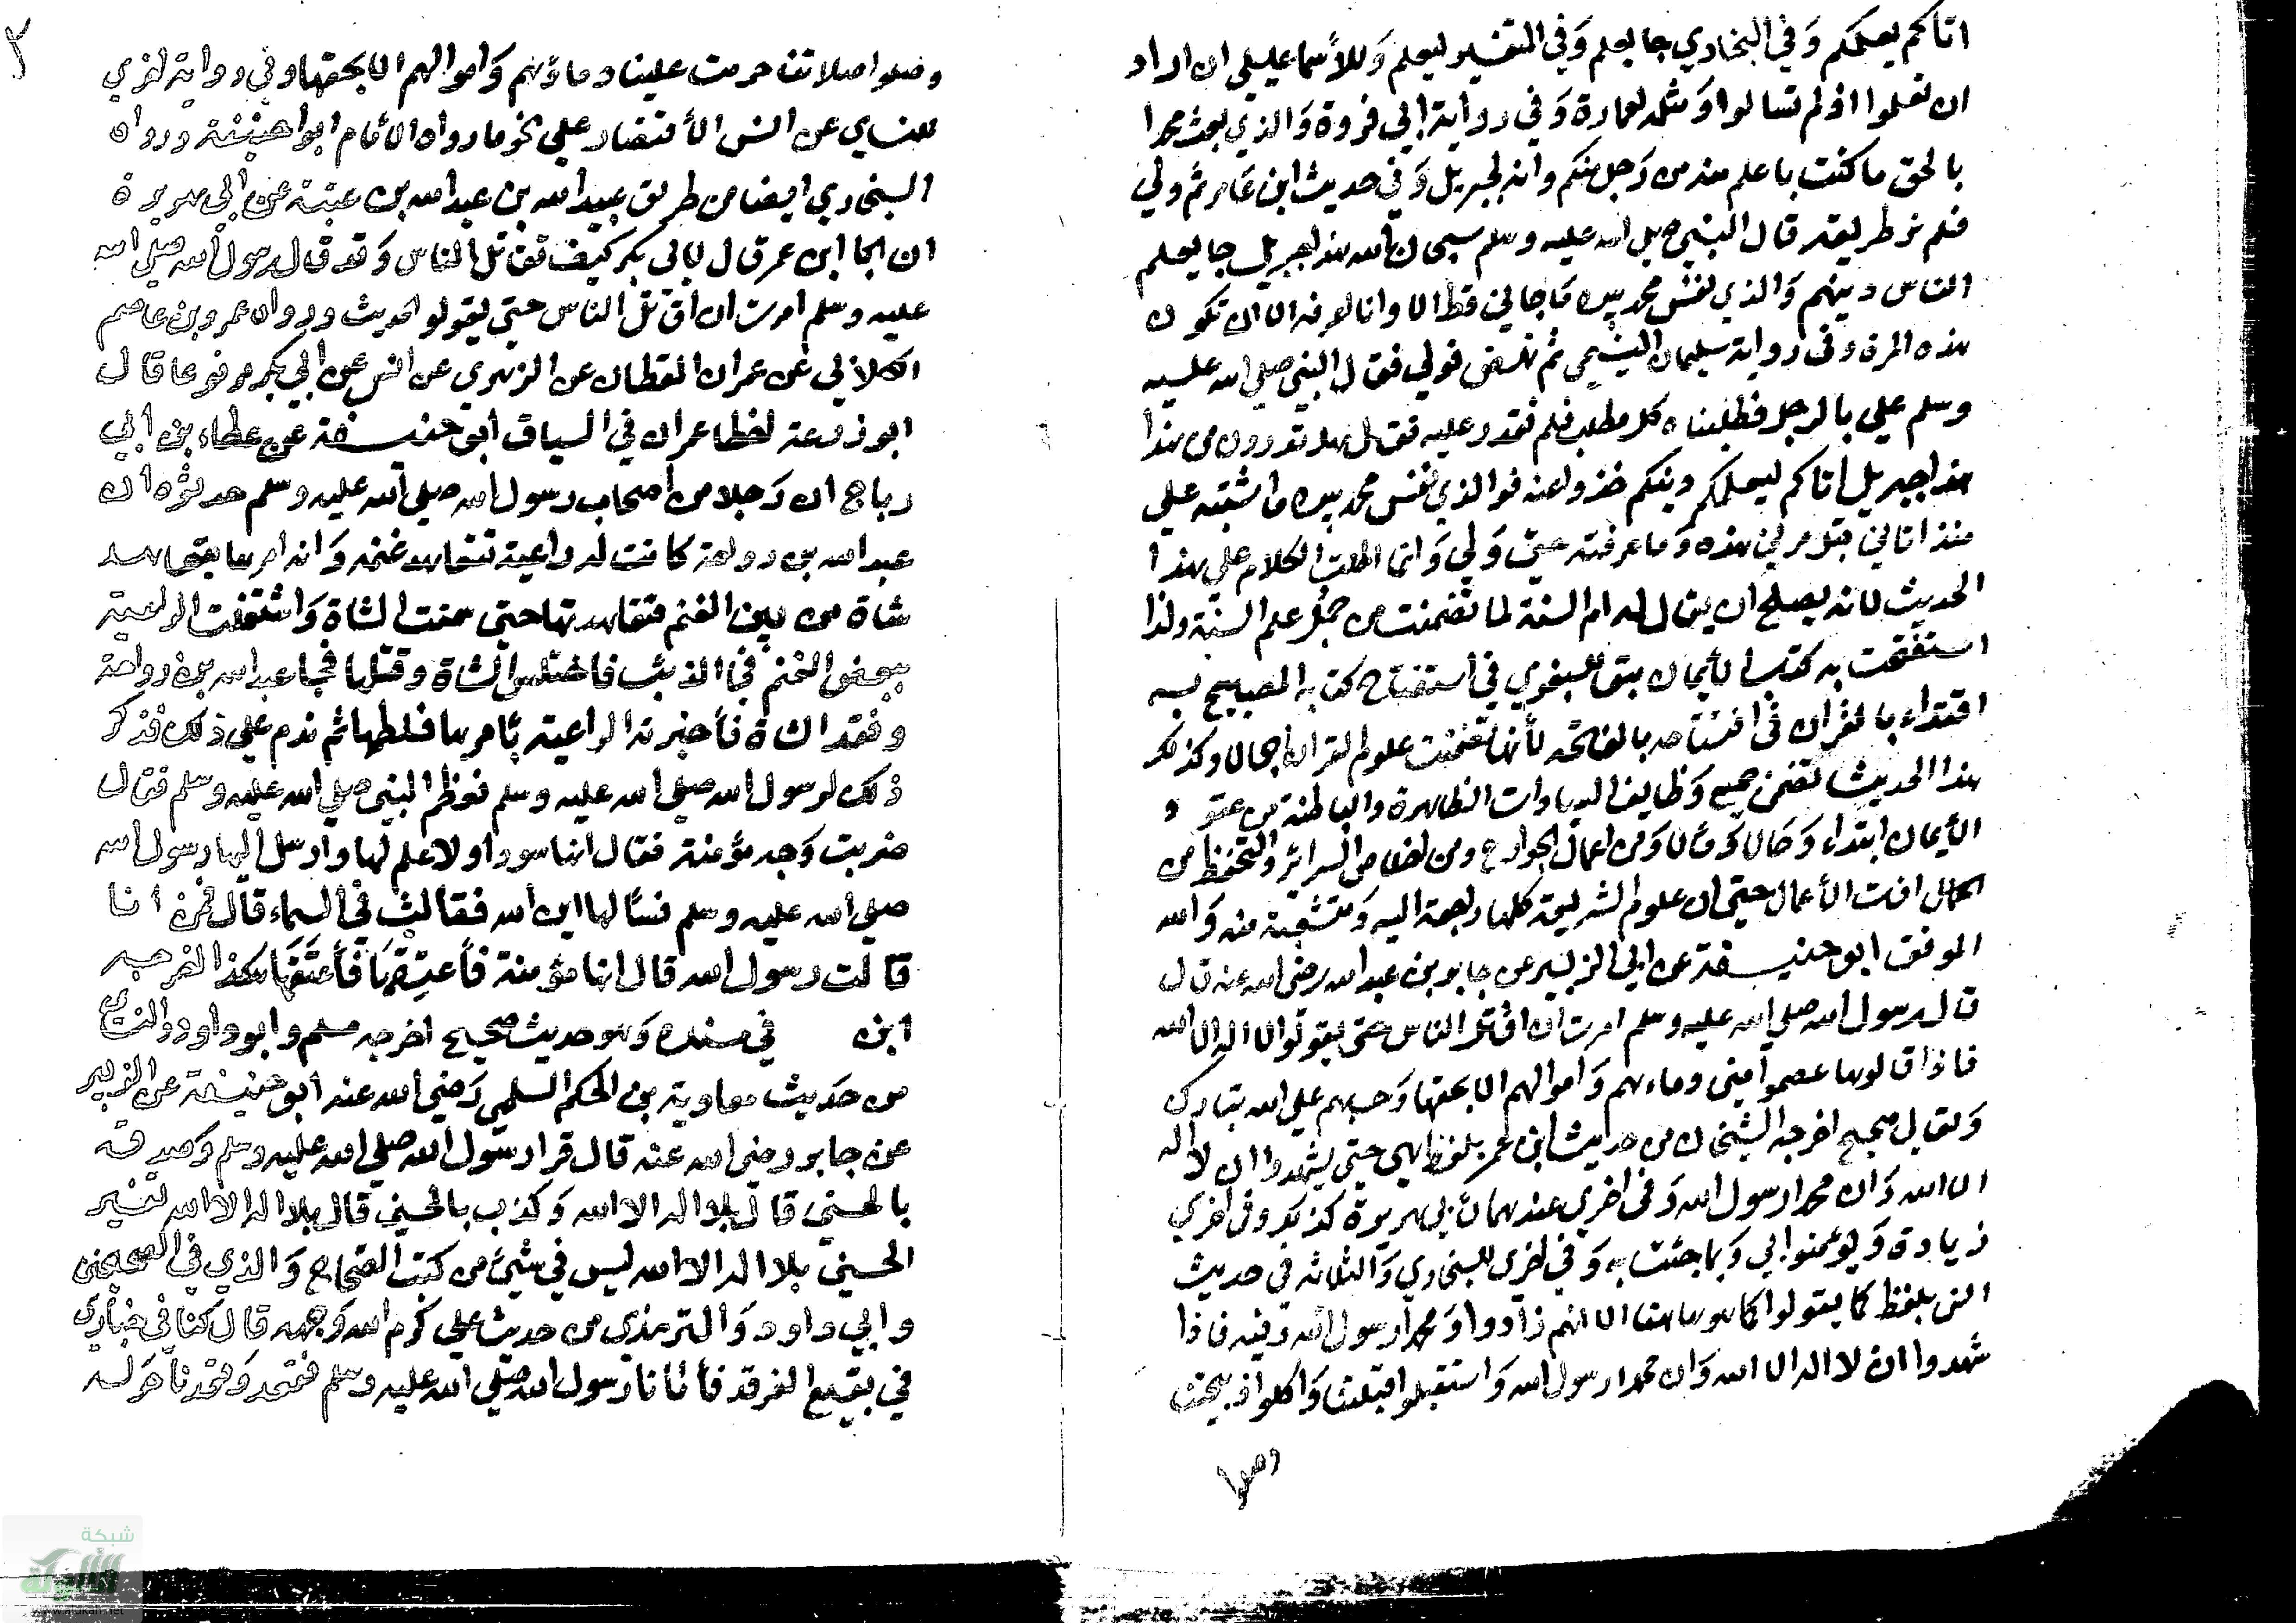 اتاكم يعلمكم وَفي البخاري جا يعلم وَفي التفسير ليعلم وَللأسماعيلي ان اراد
ان تعلموا اذ لم تسالوا وَمثله لعمارة وَفي رواية ابي فروة وَالذي بعث محمدا
بالحق ما كنت باعلم منه من رَجل منكم وانه لجبريل وَفي حديث ابن عَامر ثم ولي
فلم نر طريقه قال النبي صلى الله عليه وسلم سبحان الله هذا جبريل جا يعلم
الناس دينهم وَالذي نفس محمد بيده مَا جاني قط الا وانا اعرفه الا ان تكون
هذه المرة وفي رواية سليمان التيمي ثم نهض فولي فقال النبي صلي الله عليه
وسلم علي بالرجل فطلبناه كل مطلب فلم نقدر عليه فقال هل تدرون من هذا
هذا جبريل أتاكم ليعلمكم دينكم خذوا عنه فوالذي نفس محمد بيده ما اشتبه علي
منذ اتاني قبل مرتي هذه وَما عرفته حتي وَلي وَانما اطلت الكلام علي هذا
الحديث لانه يصلح ان يقال له ام السنة لما تضمنت من جمل علم السنة ولذا
استفتحت به كتاب الأيمان تبعا للبغوي في استفتاح كتابه المصابيح به
اقتداء بالقران في افتتاحه بالفاتحه لأنها تضمنت علوم القران اجمالا وكذلك
هذا الحديث تضمن جميع وَظايف العبادات الظاهرة والباطنة من عقود
الأيمان ابتداء وَحالا وَمآلا وَمن اعمال الجوارح ومن اخلاص السرائر والتحفظ من
افات الأعمال حتي ان علوم الشريعة كلها راجعة اليه وَمتشعبة منه وَالله
الموفق ابو حنيــفة عن ابي الزبير عن جابر بن عبد الله رضي الله عنه قال
قال رسول الله صلى الله عليه وسلم امرت ان اقاتل الناس حتى يقولوا لا اله الا الله
فاذا قالوها عصموا مني دماءهم وَاموالهم الا بحقها وَحسابهم علي الله تبارك
وَتعالي صحيح اخرجه الشيخان من حديث ابن عمر بلفظ حتي يشهدوا ان لا اله
الا الله وَان محمدا رسول الله وَفي اخري عندهما لأبي هريرة كذلك وفي اخري
زيادة وَيؤمنوا بي وَبما جئت به وَفي اخري للبخاري وَالثلاثه في حديث
انس بلفظ يقولوا كما هو هاهنا الا انهم زادوا وَمحمدا رسول الله وَفيه فاذا
شهدوا ان لا اله الا الله وَان محمدا رسول الله وَاستقبلوا قبلتنا وَاكلوا ذبيحتنا
وصلوا
٢
وصلوا صلاتنا حرمت علينا دماؤهم وَاموالهم الا بحقها وفي رواية اخري
للنساي عن انس الأقتصار علي نحو ما رواه الأمام ابو احنيفة ورواه
البخاري ايضا من طريق عبيد الله بن عبد الله بن عتبة عن ابي هريرة
ان عمر قال لابي بكر كيف تقاتل الناس وَقد قال رسول الله صلي الله
عليه وسلم امرت ان اقاتل الناس حتي يقولو الحديث ورواه عمرو بن عاصم
الكلابي عن عمران القطان عن الزهري عن انس عن ابي بكر مرفوعا قال
ابو زرعة اخطا عمران في السياق أبو حنيــفة عن عطاء بن ابي
رباح ان رَجلا من أصحاب رسول الله صلي الله عليه وسلم حدثوه ان
عبد الله بن رواحة كانت له راعية تتعاهد غنمه وَانه امرها تتعاهد
شاة من بين الغنم فتعاهدتها حتي سمنت الشاة وَاشتغلت الراعية
ببعض الغنم فجا الذئب فاختلس الشاة وقتلها فجا عبد الله بن رواحة
وفقد الشاة فأخبرته الراعية بأمرها فلطمها ثم ندم علي ذلك فذكر
ذلك لرسول الله صلى الله عليه وسلم فعظم النبي صلي الله عليه وسلم فقال
ضربت وَجه مؤمنة فقال انها سودا ولا علم لها وارسل اليها رسول الله
صلي الله عليه وسلم فسألها اين الله فقالت في السماء قال فمن انا
قالت رسول الله قال انها مؤمنة فأعتِقهَا فأَعتَقَهَا هكذا اخرجه
ابن في مسنده وَهو حديث صحيح اخرجه مسلم وابو داود والنسائي
من حَديث معاوية بن الحكم السلمي رَضي الله عنه أبو حنيــفة عن الزبير
عن جابر رضي الله عنه قال قرا رسول الله صلي الله عليه وسلم وَصدق
بالحسني قال بلا اله الا الله وَكذب بالحسني قال بلا اله الا الله تفسير
الحسني بلا اله الا الله ليس في شيئ من كتب الصحاح وَالذي في الصحيحين
وابي داود وَالترمذي من حديث علي كرم الله وَجهه قال كنا في جنازة
في بقيع الغرقد فأتانا رَسول الله صلي الله عليه وسلم فقعد وَقعدنا حَوله
شبكة
الألوكة
www.alukah.net